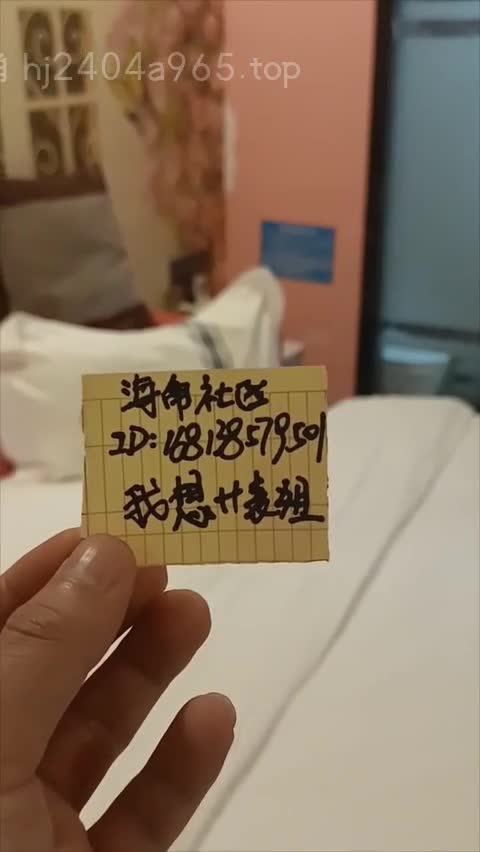 hj2404a965.top
海角社区
ID:168138579501
我想艹表姐